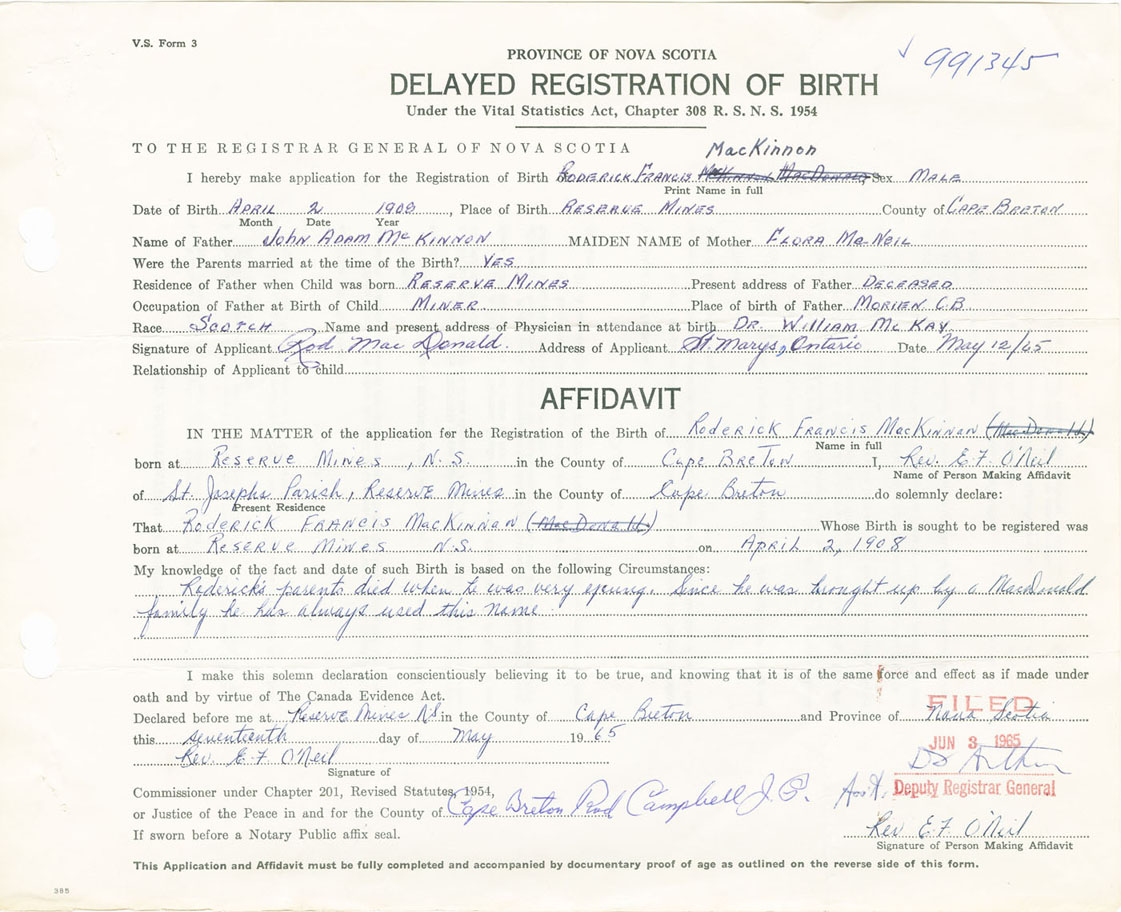 V.S. Form 3
991345
PROVINCE OF NOVA SCOTIA
DELAYED REGISTRATION OF BIRTH
Under the Vital Statistics Act, Chapter 308 R. S. N. S. 1954
TO THE REGISTRAR GENERAL OF NOVA SCOTIA MacKinnon
I hereby make application for the Registration of Birth RODERICK FRANCIS McKinnon MacDonald Sex MALE
Print Name in full
Date of Birth APRIL 2 1908, Place of Birth RESERVE MINES County of CAPE BRETON
Month Date Year
Name of Father JOHN ADAM McKINNON MAIDEN NAME of Mother FLORA MacNEIL
Were the Parents married at the time of the Birth? YES
Residence of Father when Child was born RESERVE MINES Present address of Father DECEASED
Occupation of Father at Birth of Child MINER Place of birth of Father MORIEN C.B.
Race SCOTCH Name and present address of Physician in attendance at birth DR. WILLIAM McKAY
Signature of Applicant Rod MacDonald. Address of Applicant St. Marys, Ontario Date May 12/65
Relationship of Applicant to child
AFFIDAVIT
IN THE MATTER of the application for the Registration of the Birth of RODERICK FRANCIS MACKINNAN (MacDonald)
Name in full
born at RESERVE MINES, N.S. in the County of CAPE BRETON I, Rev. E.F. O'Neil
Name of Person Making Affidavit
of St. Josephs Parish, Reserve Mines in the County of Cape Breton do solemnly declare:
Present Residence
That RODERICK FRANCIS MACKINNAN (MacDonald) Whose Birth is sought to be registered was
born at RESERVE MINES N.S. on APRIL 2, 1908
My knowledge of the fact and date of such Birth is based on the following Circumstances:
Roderick's parents died when he was very young. Since he was brought up by a MacDonald
family he has always used this name.
I make this solemn declaration conscientiously believing it to be true, and knowing that it is of the same force and effect as if made under
oath and by virtue of The Canada Evidence Act.
FILED
Declared before me at Reserve Mines NS in the County of Cape Breton and Province of Nova Scotia
this seventeenth day of May 1965
JUN 3 1965
Rev. E.F. O'Neil
Signature of
Deputy Registrar General
Commissioner under Chapter 201, Revised Statutes, 1954,
or Justice of the Peace in and for the County of Cape Breton Rod Campbell J.P.
If sworn before a Notary Public affix seal.
Rev E.F. O'Neil
Signature of Person Making Affidavit
This Application and Affidavit must be fully completed and accompanied by documentary proof of age as outlined on the reverse side of this form.
385